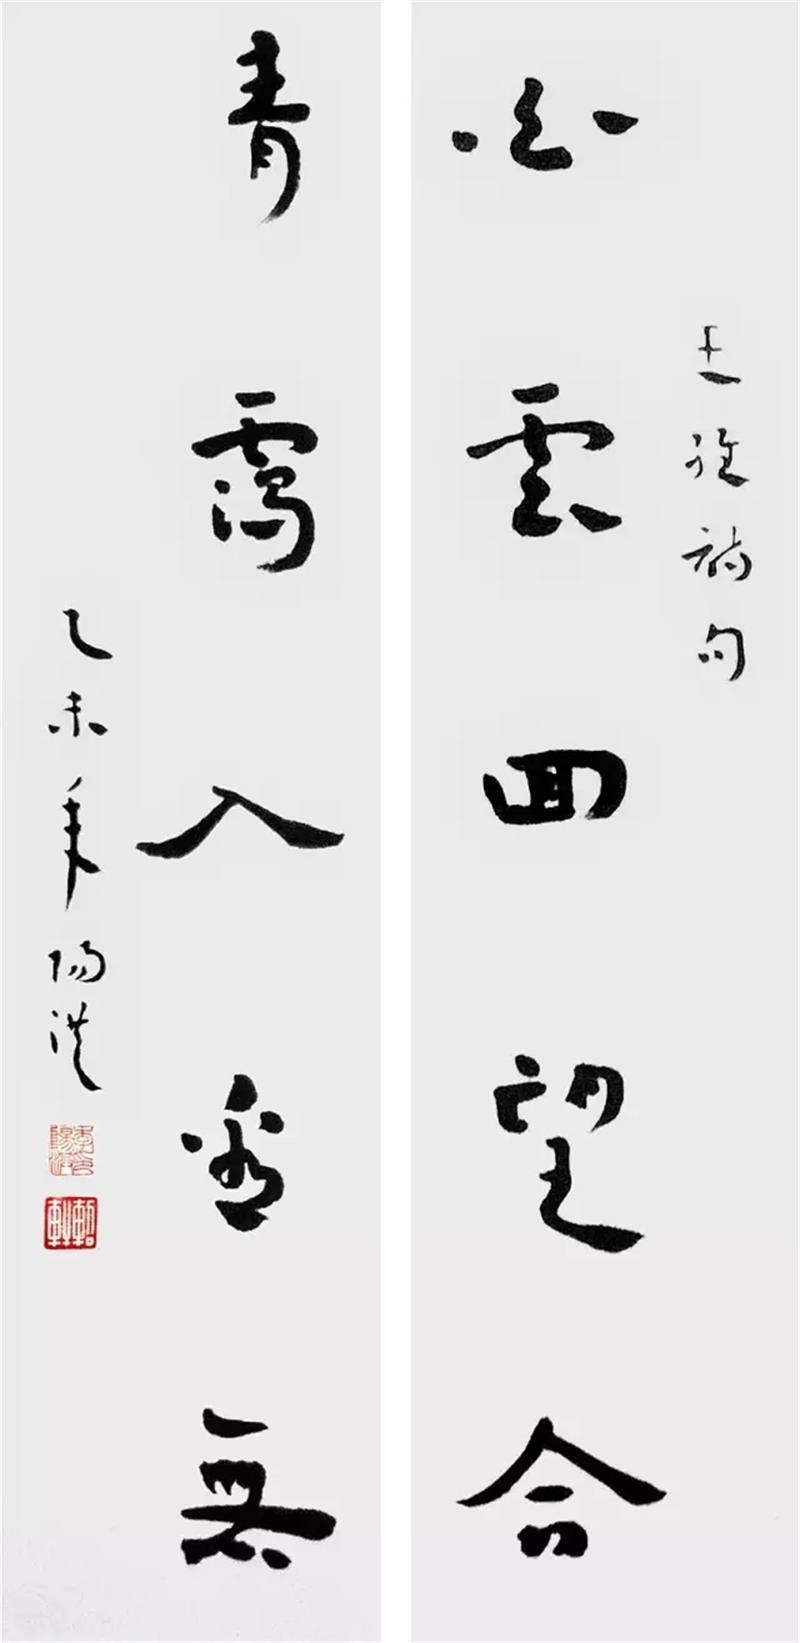 王維詩句
白雲回望合
青靄入看無
乙未年陽洪